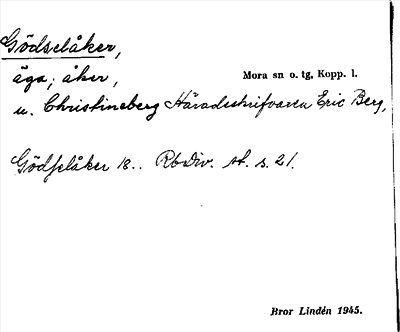 Gödselåker,
äga; åker,
Mora sn o. tg, Kopp. l.
u. Christineberg Häradsskrifvaren Eric Berg,
Gödselåker 18.. RbDiv. st. s. 21.
Bror Lindén 1945.